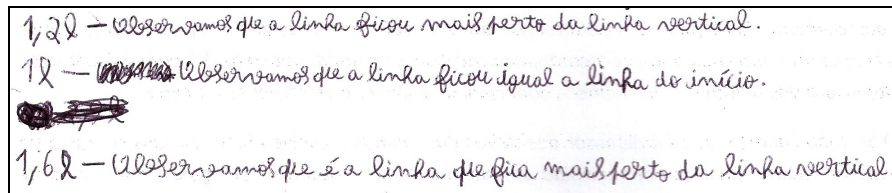 1,2l – Observamos que a linha ficou mais perto da linha vertical.
1l – Observamos que a linha ficou igual a linha do início.
1,6l – Observamos que é a linha que fica mais perto da linha vertical